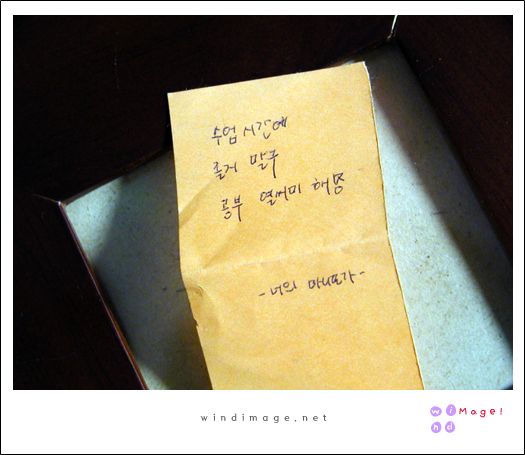 수업시간에
졸지 말구
공부 열씨미 해용
-너의 마니또가-
windimage.net
wiMage!
nd